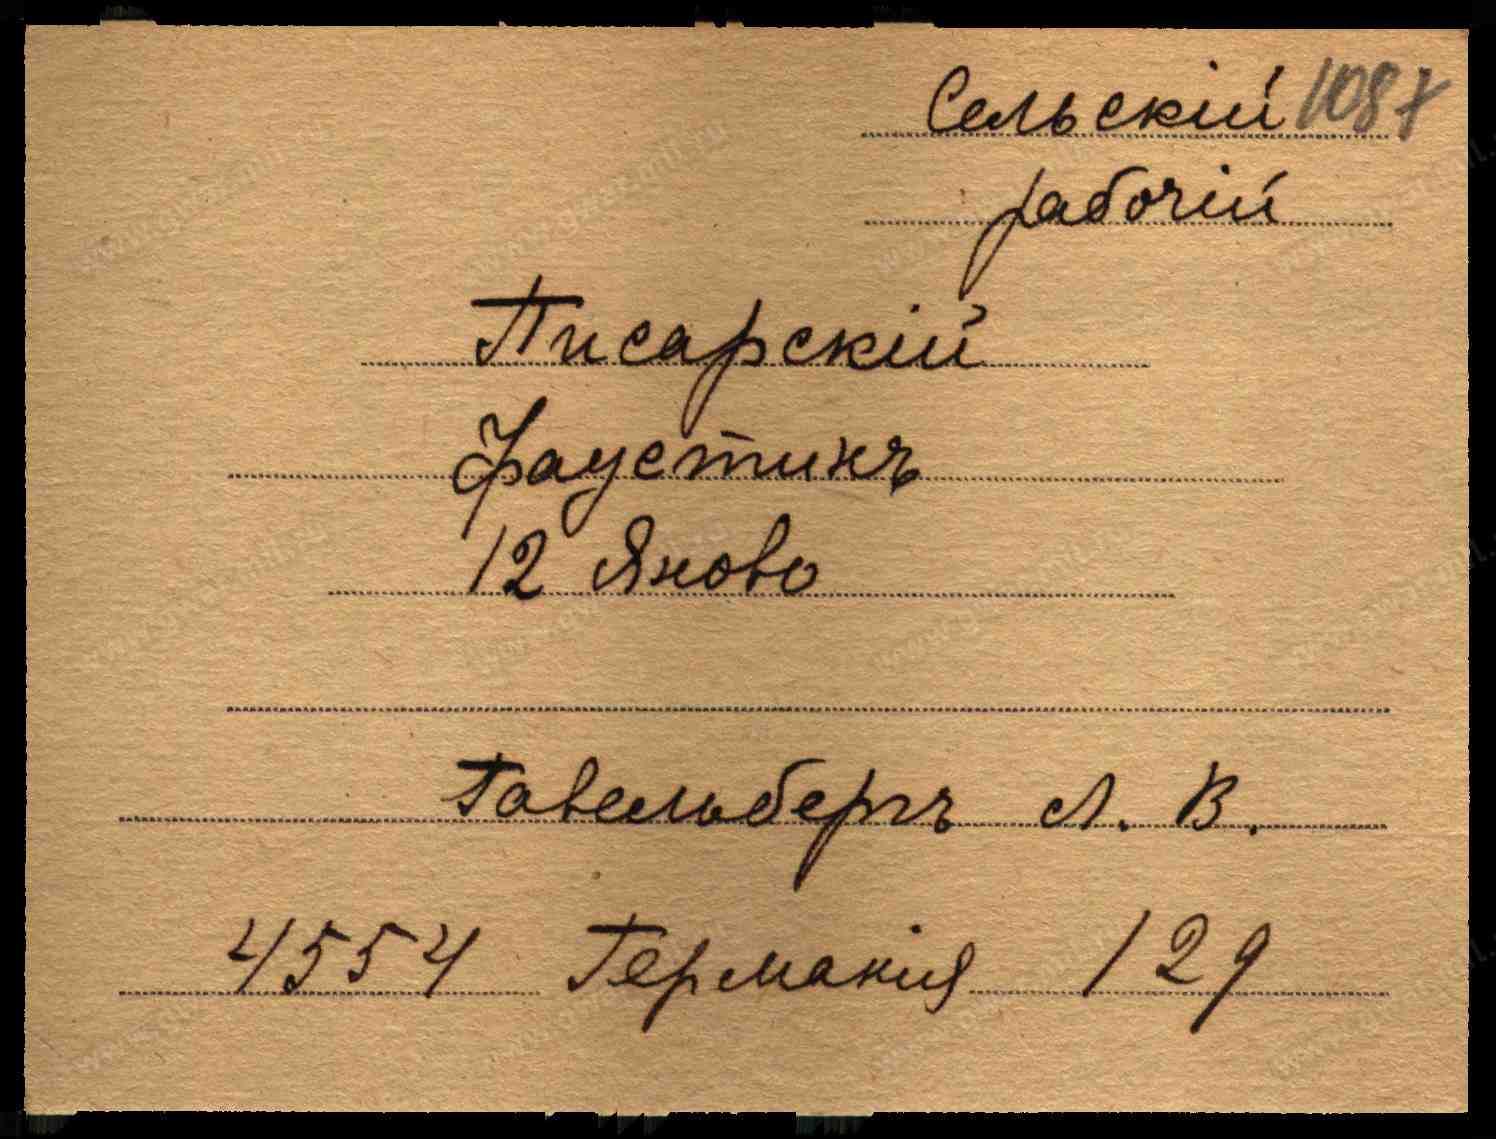 Сельскій 1087
рабочій
Писарскій
Фаустинъ
12 Яново
Гавельбергъ л. В.
4554 Германія 129